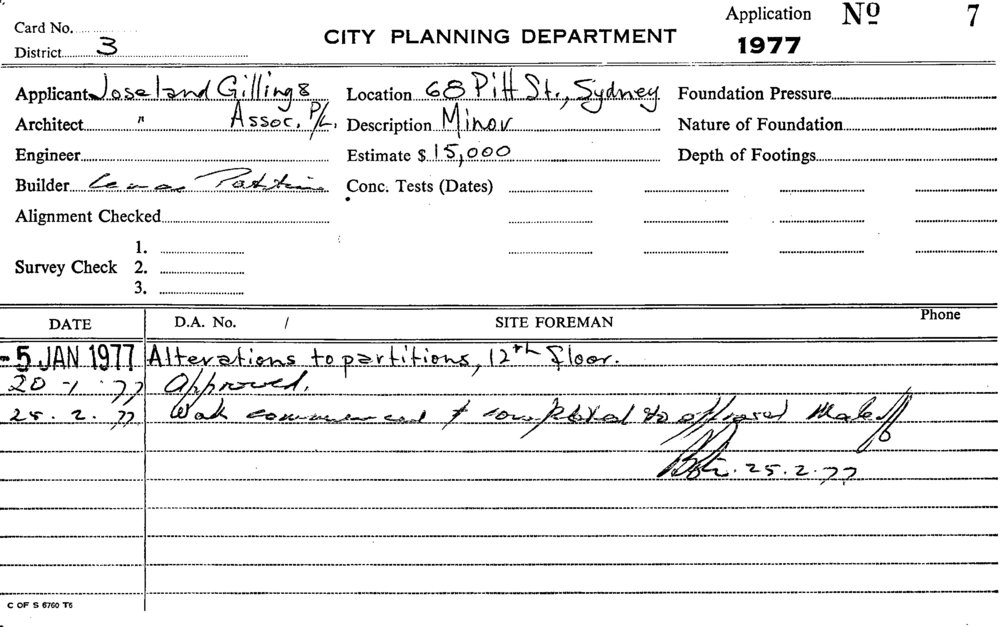 Card No.
District 3
CITY PLANNING DEPARTMENT
Application No 7
1977
Applicant Joseland Gillings
Assoc. P/L.
Architect "
Engineer
Builder
Alignment Checked
Survey Check 1.
2.
3.
Location 68 Pitt St., Sydney
Description Minor
Estimate $ 15,000
Conc. Tests (Dates)
Foundation Pressure
Nature of Foundation
Depth of Footings
DATE D.A. No. / SITE FOREMAN Phone
-5 JAN 1977 Alterations to partitions, 12th floor.
20 - 1 - 77 Approved.
25 . 2 . 77 Work commenced & completed to
25 . 2 . 77
C OF S 6760 T6